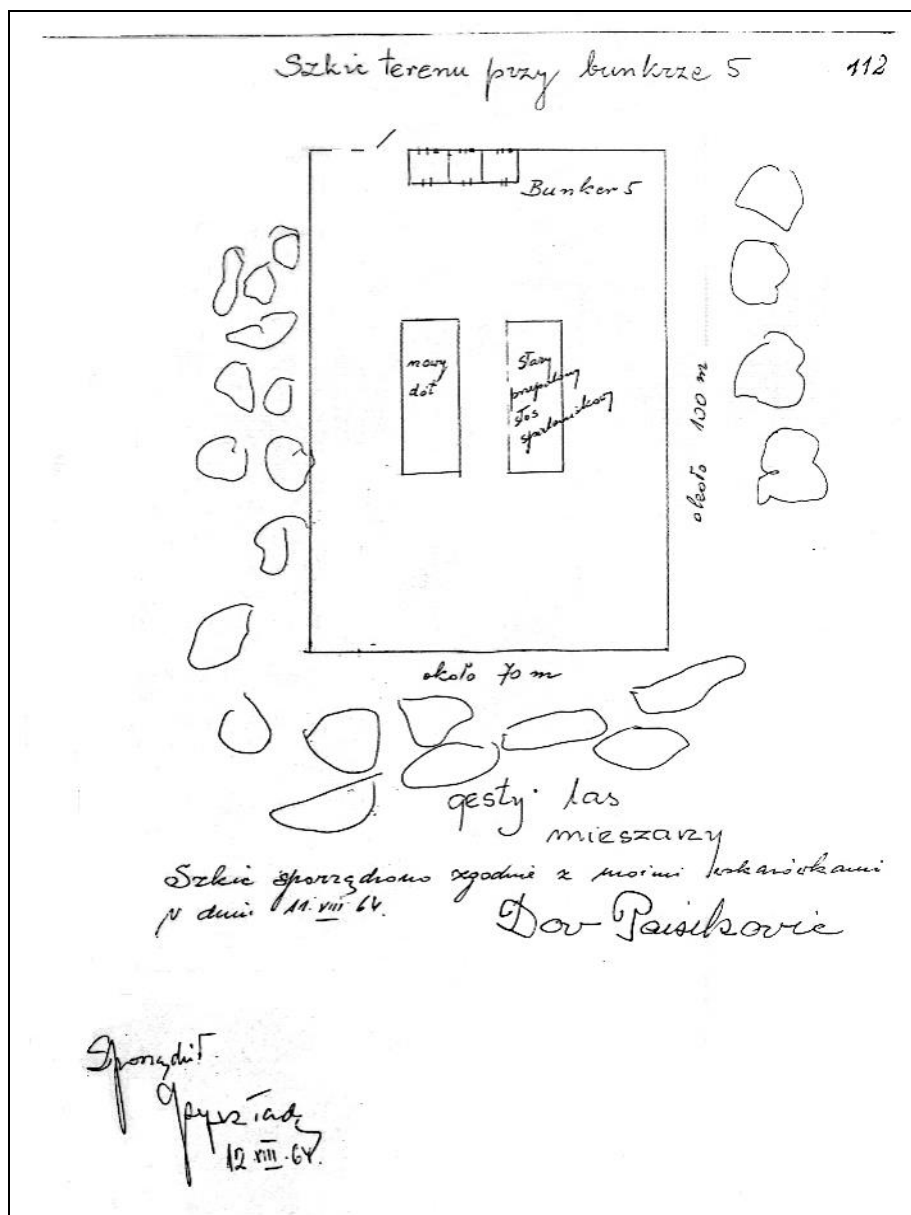 Szkic terenu przy bunkrze 5 112
Bunker 5
nowy
dół
stary
stos
około 100 m
około 70 m
gęsty las
mieszany
Szkic sporządzono zgodnie z moimi wskazówkami
w dniu 11.VIII.64.
Dov Paisikovic
Sporządził
12.VIII.64.